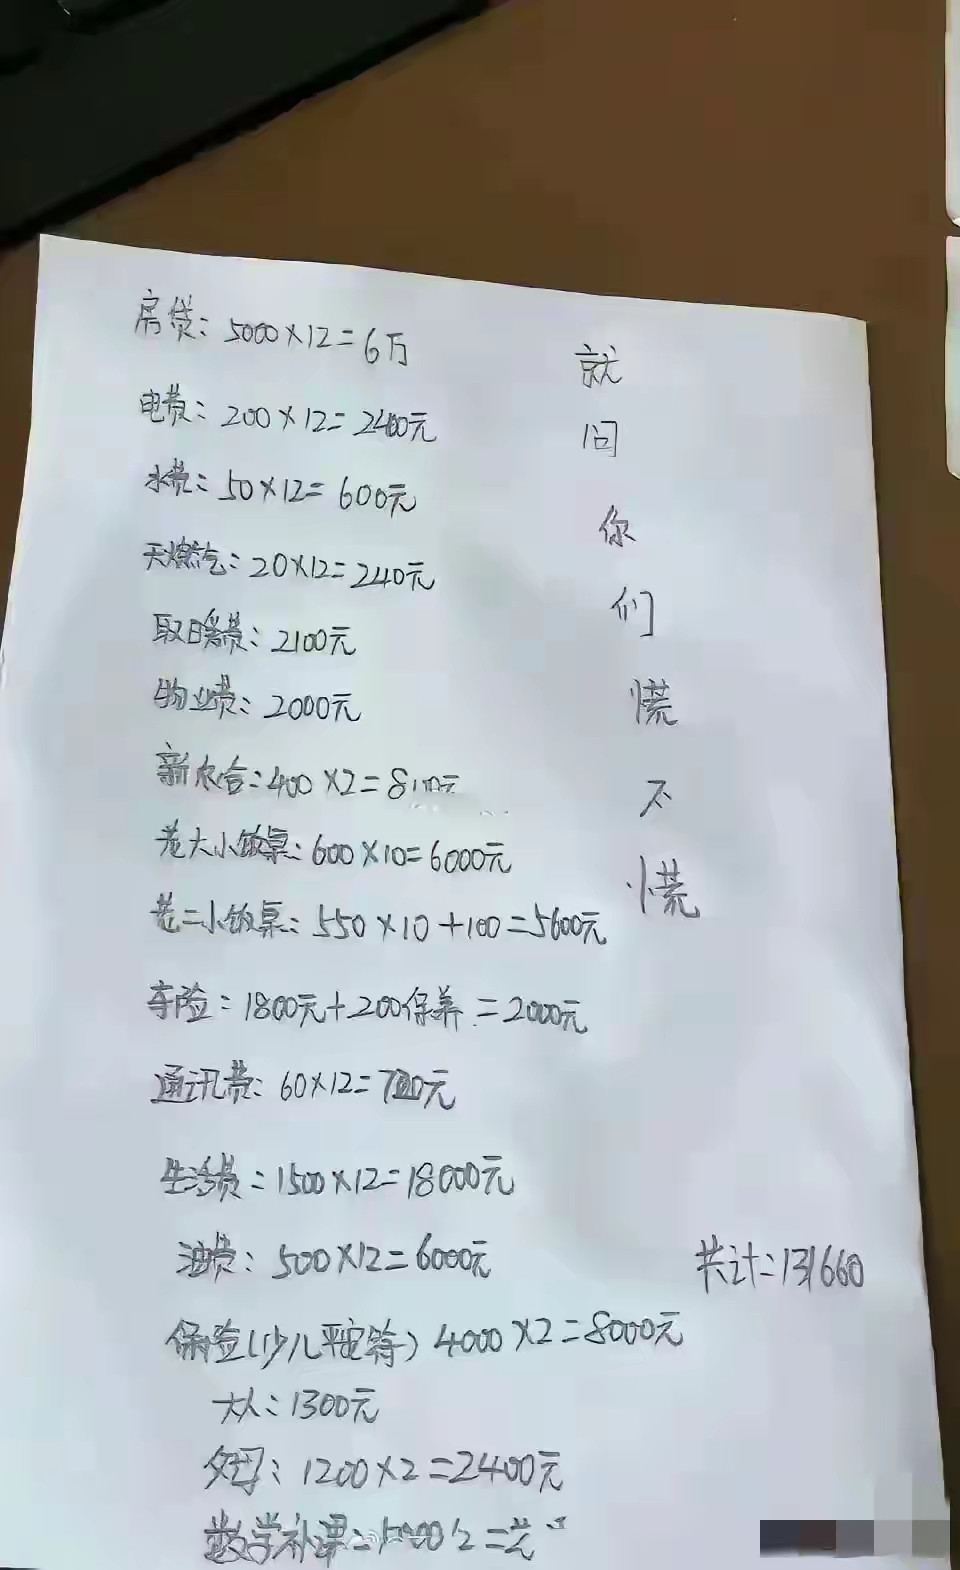 房贷：5000×12=6万
电费：200×12=2400元
水费：50×12=600元
天燃气：20×12=240元
取暖费：2100元
物业费：2000元
新农合：400×2=800元
老大小饭桌：600×10=6000元
老二小饭桌：550×10+100=5600元
车险：1800元+200保养=2000元
通讯费：60×12=720元
生活费：1500×12=18000元
油费：500×12=6000元
保险(少儿平安符) 4000×2=8000元
大人：1300元
父母：1200×2=2400元
数学补课：
就
问
你
们
慌
不
慌
共计：131660